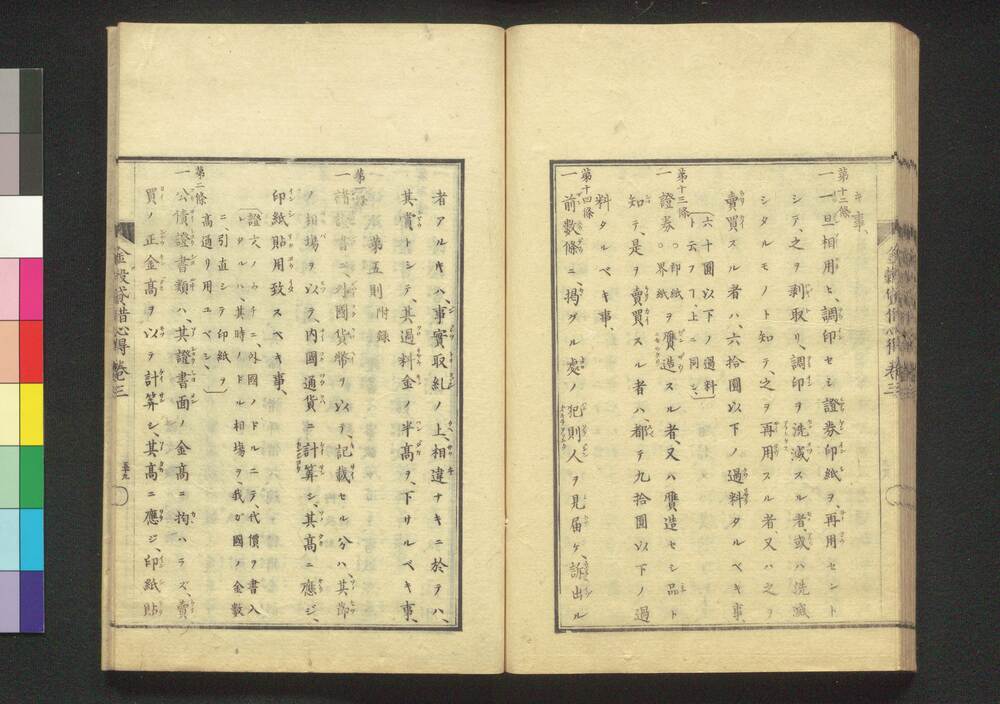 キ事、
第十二條
一 一旦相用ヒ、調印セシ證券印紙ヲ、再用セント
シテ、之ヲ剥取リ、調印ヲ洗滅スル者、或ハ洗滅
シタルモノト知テ、之ヲ再用スル者又ハ之ヲ
賣買スル者ハ、六拾圓以下ノ過料タルベキ事、
(六十圓以下ノ過料
ト云フヿ、上ニ同シ、)
第十三條
一 證券○印紙○界紙ヲ贋造スル者、又ハ贋造セシ品ト
知テ、是ヲ賣買スル者ハ、都テ九拾圓以下ノ過
料タルベキ事、
第十四條
一 前數條ニ、掲グル處ノ犯則人ヲ見届ケ、訴出ル
者アルキハ、事實取糺ノ上、相違ナキニ於テハ、
其賞トシテ、其過料金ノ半高ヲ、下サルベキ事、
第五則 附録
第一條
一 諸證書ニ、外國貨幣ヲ以テ、記載セル分ハ其節
ノ相場ヲ以テ、内國通貨ニ計算シ、其高ニ應ジ、
印紙貼用致スベキ事、
(證文ノウチニ、外國ノドルニテ、代價ヲ書入
レタルハ、其時ノドル相場ヲ、我ガ國ノ金數
ニ、引直シテ印紙ヲ
高通リ用ユベシ、)
第二條
一 公債證書類ハ、其證書面ノ金高ニ拘ハラズ、賣
買ノ正金高ヲ以テ計算シ、其高ニ應ジ、印紙貼
金穀貸借心得 卷三